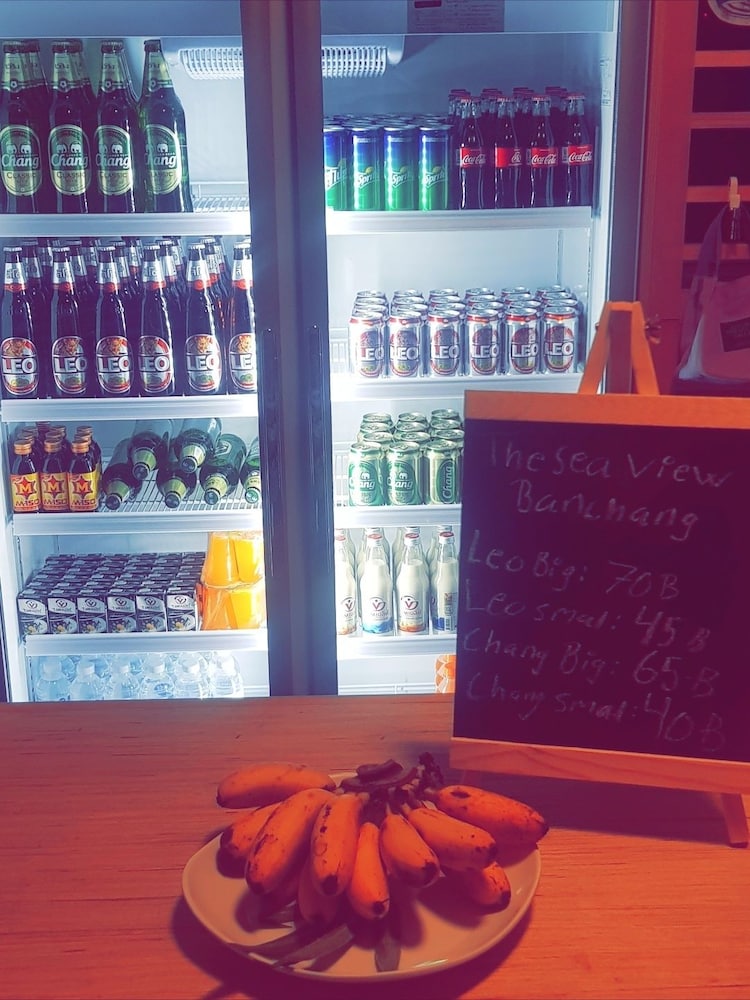 Chang
CLASSIC
Chang
CLASSIC
Chang
CLASSIC
Chang
CLASSIC
Sprite
Sprite
Sprite
Coca-Cola
Coca-Cola
Coca-Cola
LEO
LEO
LEO
LEO
LEO
LEO
LEO
LEO
LEO
LEO
LEO
LEO
M
M-150
M
M-150
M
M-150
Chang
Chang
Chang
The Sea View
Banchang
Leo Big: 70B
Leo smal: 45B
Chang Big: 65-B
Chang smal: 40B